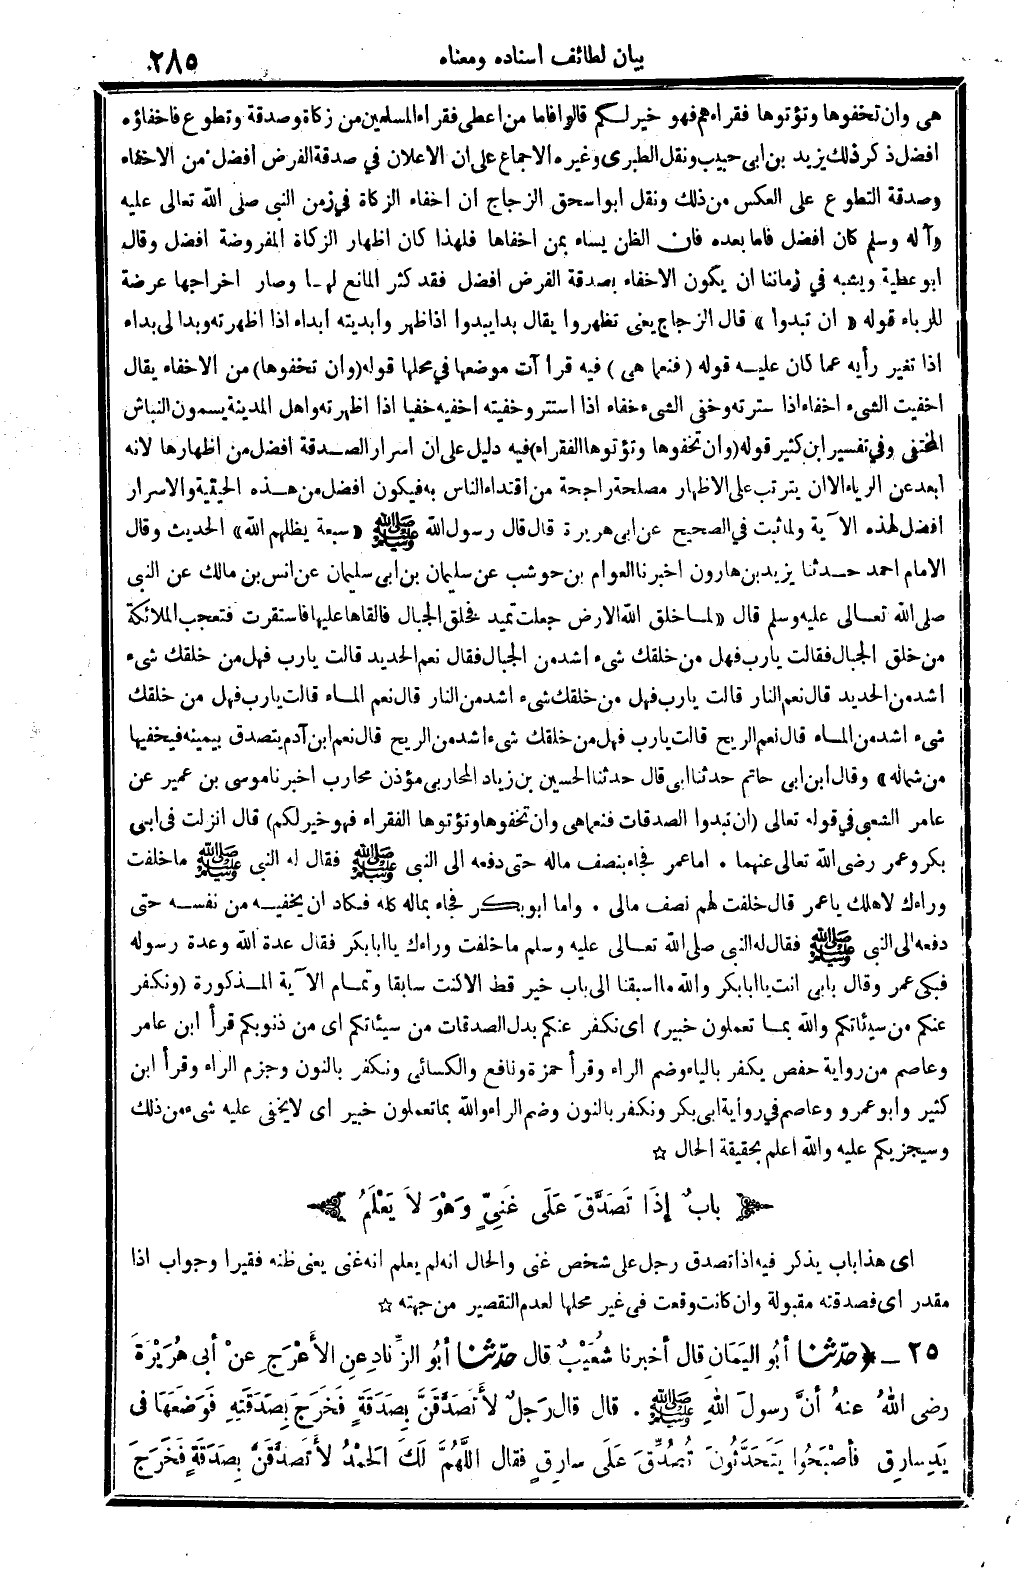 بيان لطائف اسناده ومعناه
٢٨٥
هى وان تخفوها وتؤتوها فقراءهم فهو خير لكم قالوا فاما من اعطى فقراء المسلمين من زكاة وصدقة وتطوع فاخفاؤه
افضل ذكر ذلك يزيد بن ابى حبيب ونقل الطبرى وغيره الاجماع على ان الاعلان في صدقة الفرض أفضل من الاخفاء
وصدقة التطوع على العكس من ذلك ونقل ابو اسحق الزجاج ان اخفاء الزكاة في زمن النبى صلى الله تعالى عليه
وآله وسلم كان افضل فاما بعده فان الظن يساء بمن اخفاها فلهذا كان اظهار الزكاة المفروضة افضل وقال
ابو عطية ويشبه في زماننا ان يكون الاخفاء بصدقة الفرض افضل فقد كثر المانع لها وصار اخراجها عرضة
للرياء قوله « ان تبدوا » قال الزجاج يعنى تظهروا يقال بدا يبدوا اذا ظهر وابديته ابداء اذا اظهرته وبدا لى بداء
اذا تغير رأيه عما كان عليه قوله ( فنعما هى ) فيه قراآت موضعها في محلها قوله (وان تخفوها) من الاخفاء يقال
اخفيت الشىء اخفاء اذا سترته وخفى الشىء خفاء اذا استتر وخفيته اخفيه خفيا اذا اظهرته واهل المدينة يسمون النباش
المختفى وفي تفسير ابن كثير قوله (وان تخفوها وتؤتوها الفقراء) فيه دليل على ان اسرار الصدقة افضل من اظهارها لانه
ابعد عن الرياء الا ان يترتب على الاظهار مصلحة راجحة من اقتداء الناس به فيكون افضل من هذه الحيثية والاسرار
افضل لهذه الآية ولما ثبت في الصحيح عن ابى هريرة قال قال رسول الله ﷺ «سبعة يظلهم الله» الحديث وقال
الامام احمد حدثنا يزيد بن هارون اخبرنا العوام بن حوشب عن سليمان بن ابى سليمان عن انس بن مالك عن النبى
صلى الله تعالى عليه وسلم قال «لما خلق الله الارض جعلت تميد فخلق الجبال فالقاها عليها فاستقرت فتعجب الملائكة
من خلق الجبال فقالت يارب فهل من خلقك شىء اشد من الجبال فقال نعم الحديد قالت يارب فهل من خلقك شىء
اشد من الحديد قال نعم النار قالت يارب فهل من خلقك شىء اشد من النار قال نعم الماء قالت يارب فهل من خلقك
شىء اشد من الماء قال نعم الريح قالت يارب فهل من خلقك شىء اشد من الريح قال نعم ابن آدم يتصدق بيمينه فيخفيها
من شماله» وقال ابن ابى حاتم حدثنا ابى قال حدثنا الحسين بن زياد المحاربى مؤذن محارب اخبرنا موسى بن عمير عن
عامر الشعبى في قوله تعالى (ان تبدوا الصدقات فنعما هى وان تخفوها وتؤتوها الفقراء فهو خير لكم) قال انزلت فى ابى
بكر وعمر رضى الله تعالى عنهما . اما عمر فجاء بنصف ماله حتى دفعه الى النبى ﷺ فقال له النبى ﷺ ما خلفت
وراءك لاهلك يا عمر قال خلفت لهم نصف مالى . واما ابو بكر فجاء بماله كله فكاد ان يخفيه من نفسه حتى
دفعه الى النبى ﷺ فقال له النبى صلى الله تعالى عليه وسلم ما خلفت وراءك يا ابا بكر فقال عدة الله وعدة رسوله
فبكى عمر وقال بابى انت يا ابا بكر والله ما اسبقنا الى باب خير قط الا كنت سابقا وتمام الآية المذكورة (ونكفر
عنكم من سيئاتكم والله بما تعملون خبير) اى نكفر عنكم بدل الصدقات من سيئاتكم اى من ذنوبكم قرأ ابن عامر
وعاصم من رواية حفص يكفر بالياء وضم الراء وقرأ حمزة ونافع والكسائى ونكفر بالنون وجزم الراء وقرأ ابن
كثير وابو عمرو وعاصم في رواية ابى بكر ونكفر بالنون وضم الراء والله بما تعملون خبير اى لا يخفى عليه شىء من ذلك
وسيجزيكم عليه والله اعلم بحقيقة الحال ☆
باب إِذَا تَصَدَّقَ عَلَى غَنِىٍّ وَهْوَ لاَ يَعْلَمُ
اى هذا باب يذكر فيه اذا تصدق رجل على شخص غنى والحال انه لم يعلم انه غنى يعنى ظنه فقيرا وجواب اذا
مقدر اى فصدقته مقبولة وان كانت وقعت فى غير محلها لعدم التقصير من جهته ☆
٢٥ ـ ﴿حدّثنا أبُو اليَمَانِ قال أخبرنا شُعَيْبٌ قال حدّثنا أبُو الزِّنادِ عنِ الأَعْرَجِ عنْ أبى هُرَيْرَةَ
رضى اللهُ عنهُ أنَّ رسولَ اللهِ ﷺ . قال قال رَجلٌ لأَتَصَدَّقَنَّ بِصَدَقَةٍ فَخَرَجَ بِصَدَقَتِهِ فَوَضَعَهَا فى
يَدِ سارِقٍ فأصْبَحُوا يَتَحَدَّثُونَ تُصُدِّقَ عَلَى سارِقٍ فقال اللَّهُمَّ لَكَ الحَمْدُ لأَتَصَدَّقَنَّ بِصَدَقَةٍ فَخَرَجَ